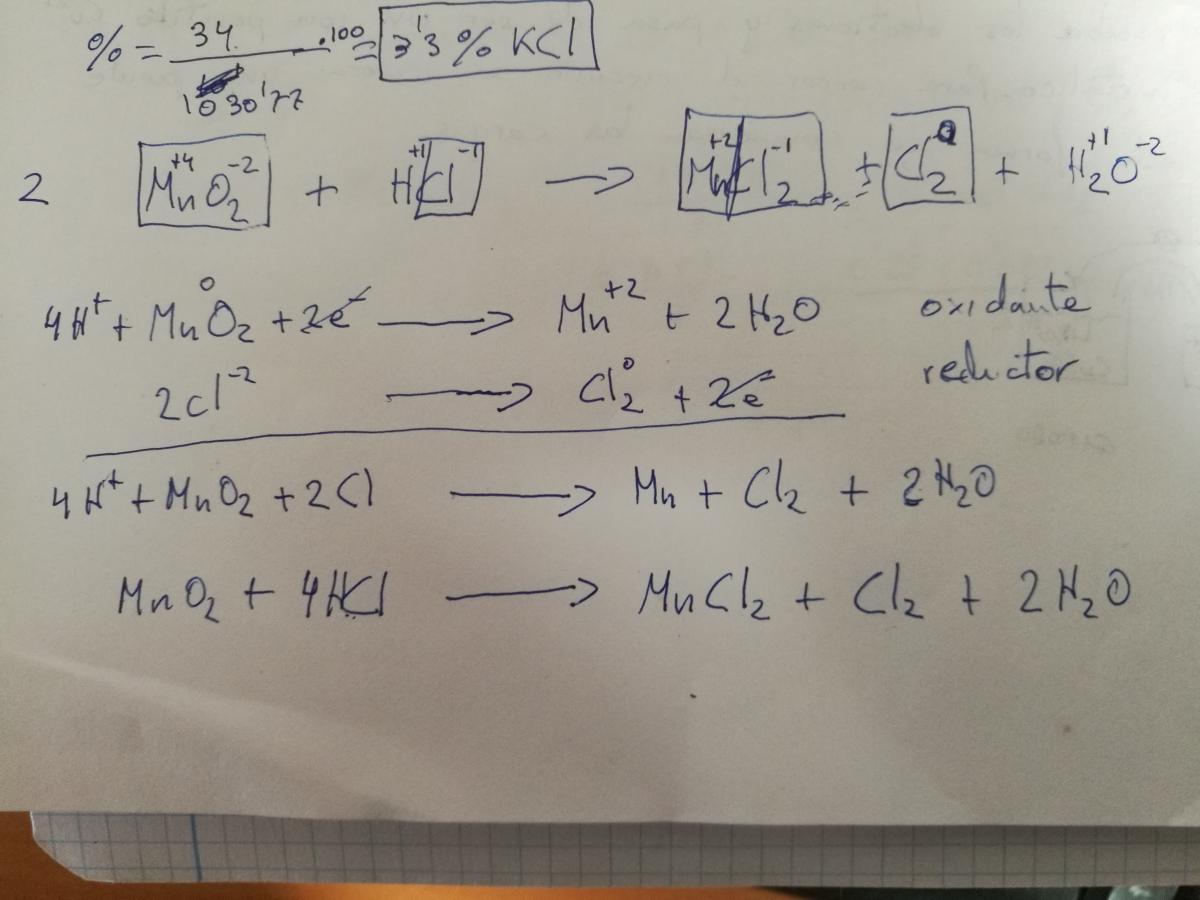 % = 34 / 1030'77 .100 = 3'3 % KCl
2 Mn⁺⁴O₂⁻² + H⁺¹Cl⁻¹ → Mn⁺²Cl₂⁻¹ + Cl₂⁰ + H₂⁺¹O⁻²
4H⁺ + MnO₂⁰ + 2e⁻ → Mn⁺² + 2H₂O oxidante
2Cl⁻² → Cl₂⁰ + 2e⁻ reductor
4H⁺ + MnO₂ + 2Cl → Mn + Cl₂ + 2H₂O
MnO₂ + 4HCl → MnCl₂ + Cl₂ + 2H₂O